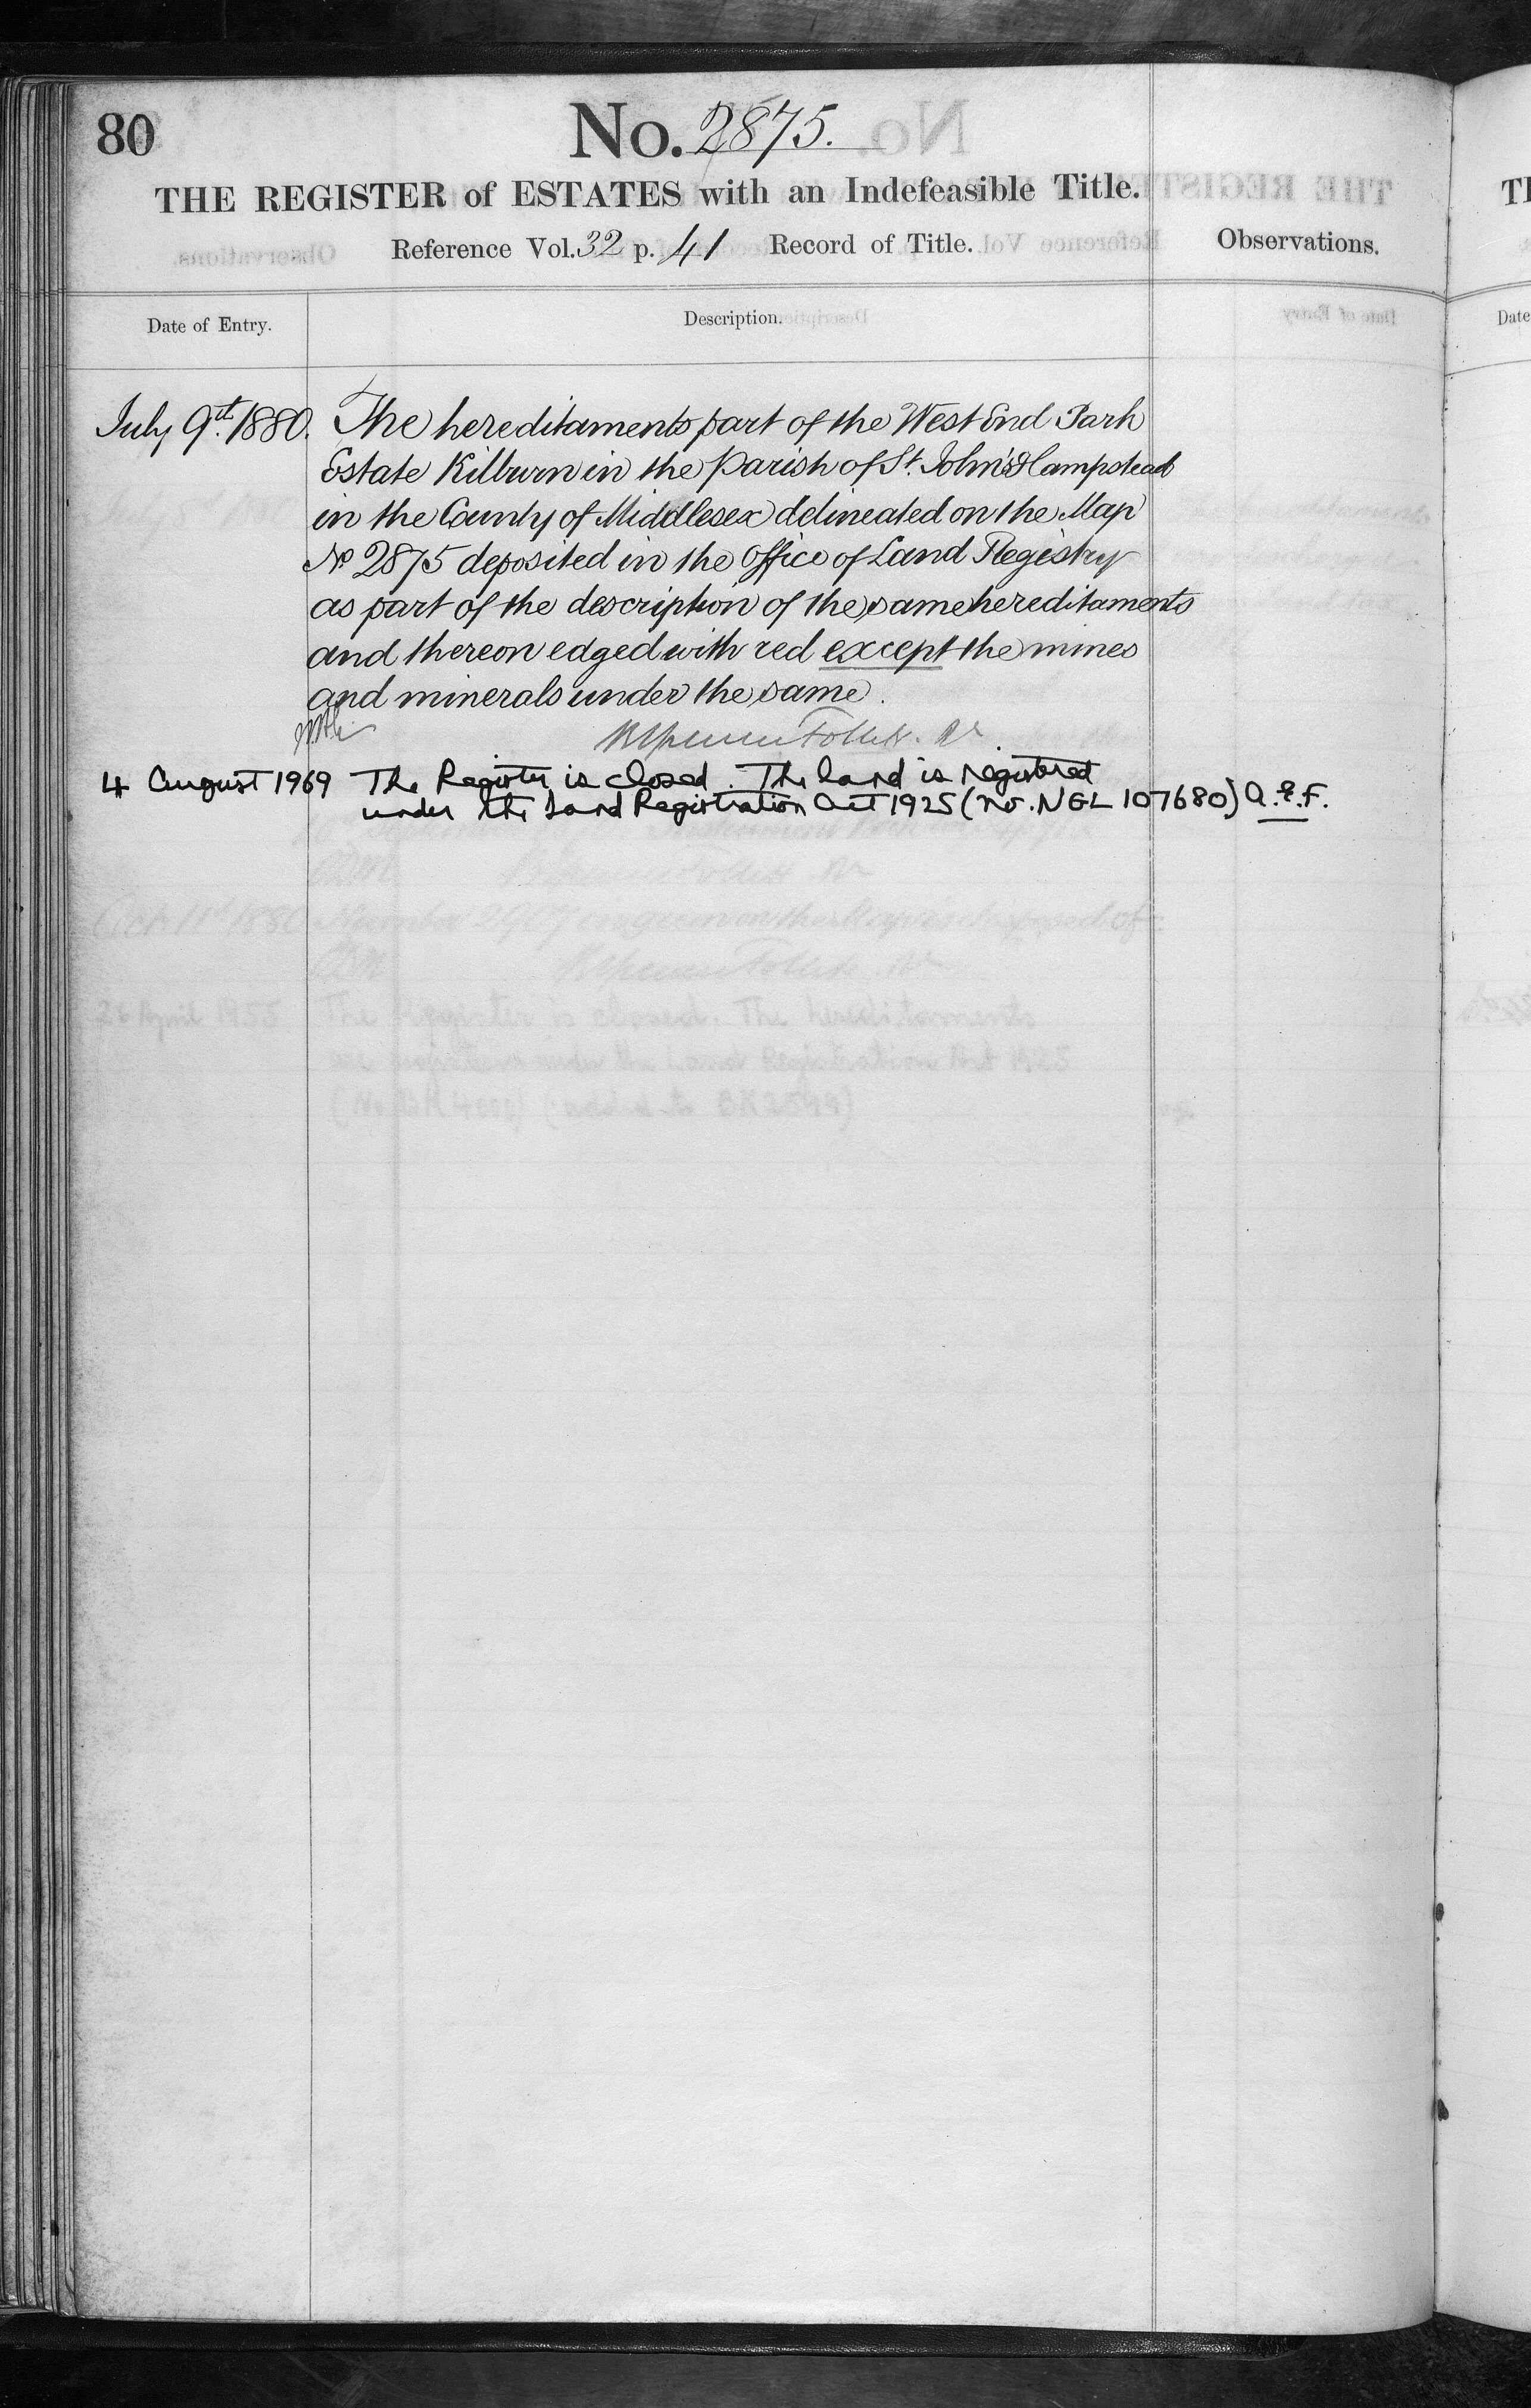 80
No. 2875.
THE REGISTER of ESTATES with an Indefeasible Title.
Reference Vol. 32 p. 41 Record of Title.
Observations.
Date of Entry.
Description.
July 9th. 1880. The hereditaments part of the West End Park
Estate Kilburn in the Parish of St. John's Hampstead
in the County of Middlesex delineated on the Map
No 2875 deposited in the Office of Land Registry
as part of the description of the same hereditaments
and thereon edged with red except the mines
and minerals under the same.
Follett.
4 August 1969 The Register is closed. The land is registered
under the Land Registration Act 1925 (no. NGL 107680) A.E.F.
26 April 1955 The Register is closed. The hereditaments
are registered under the Land Registration Act 1925
Date